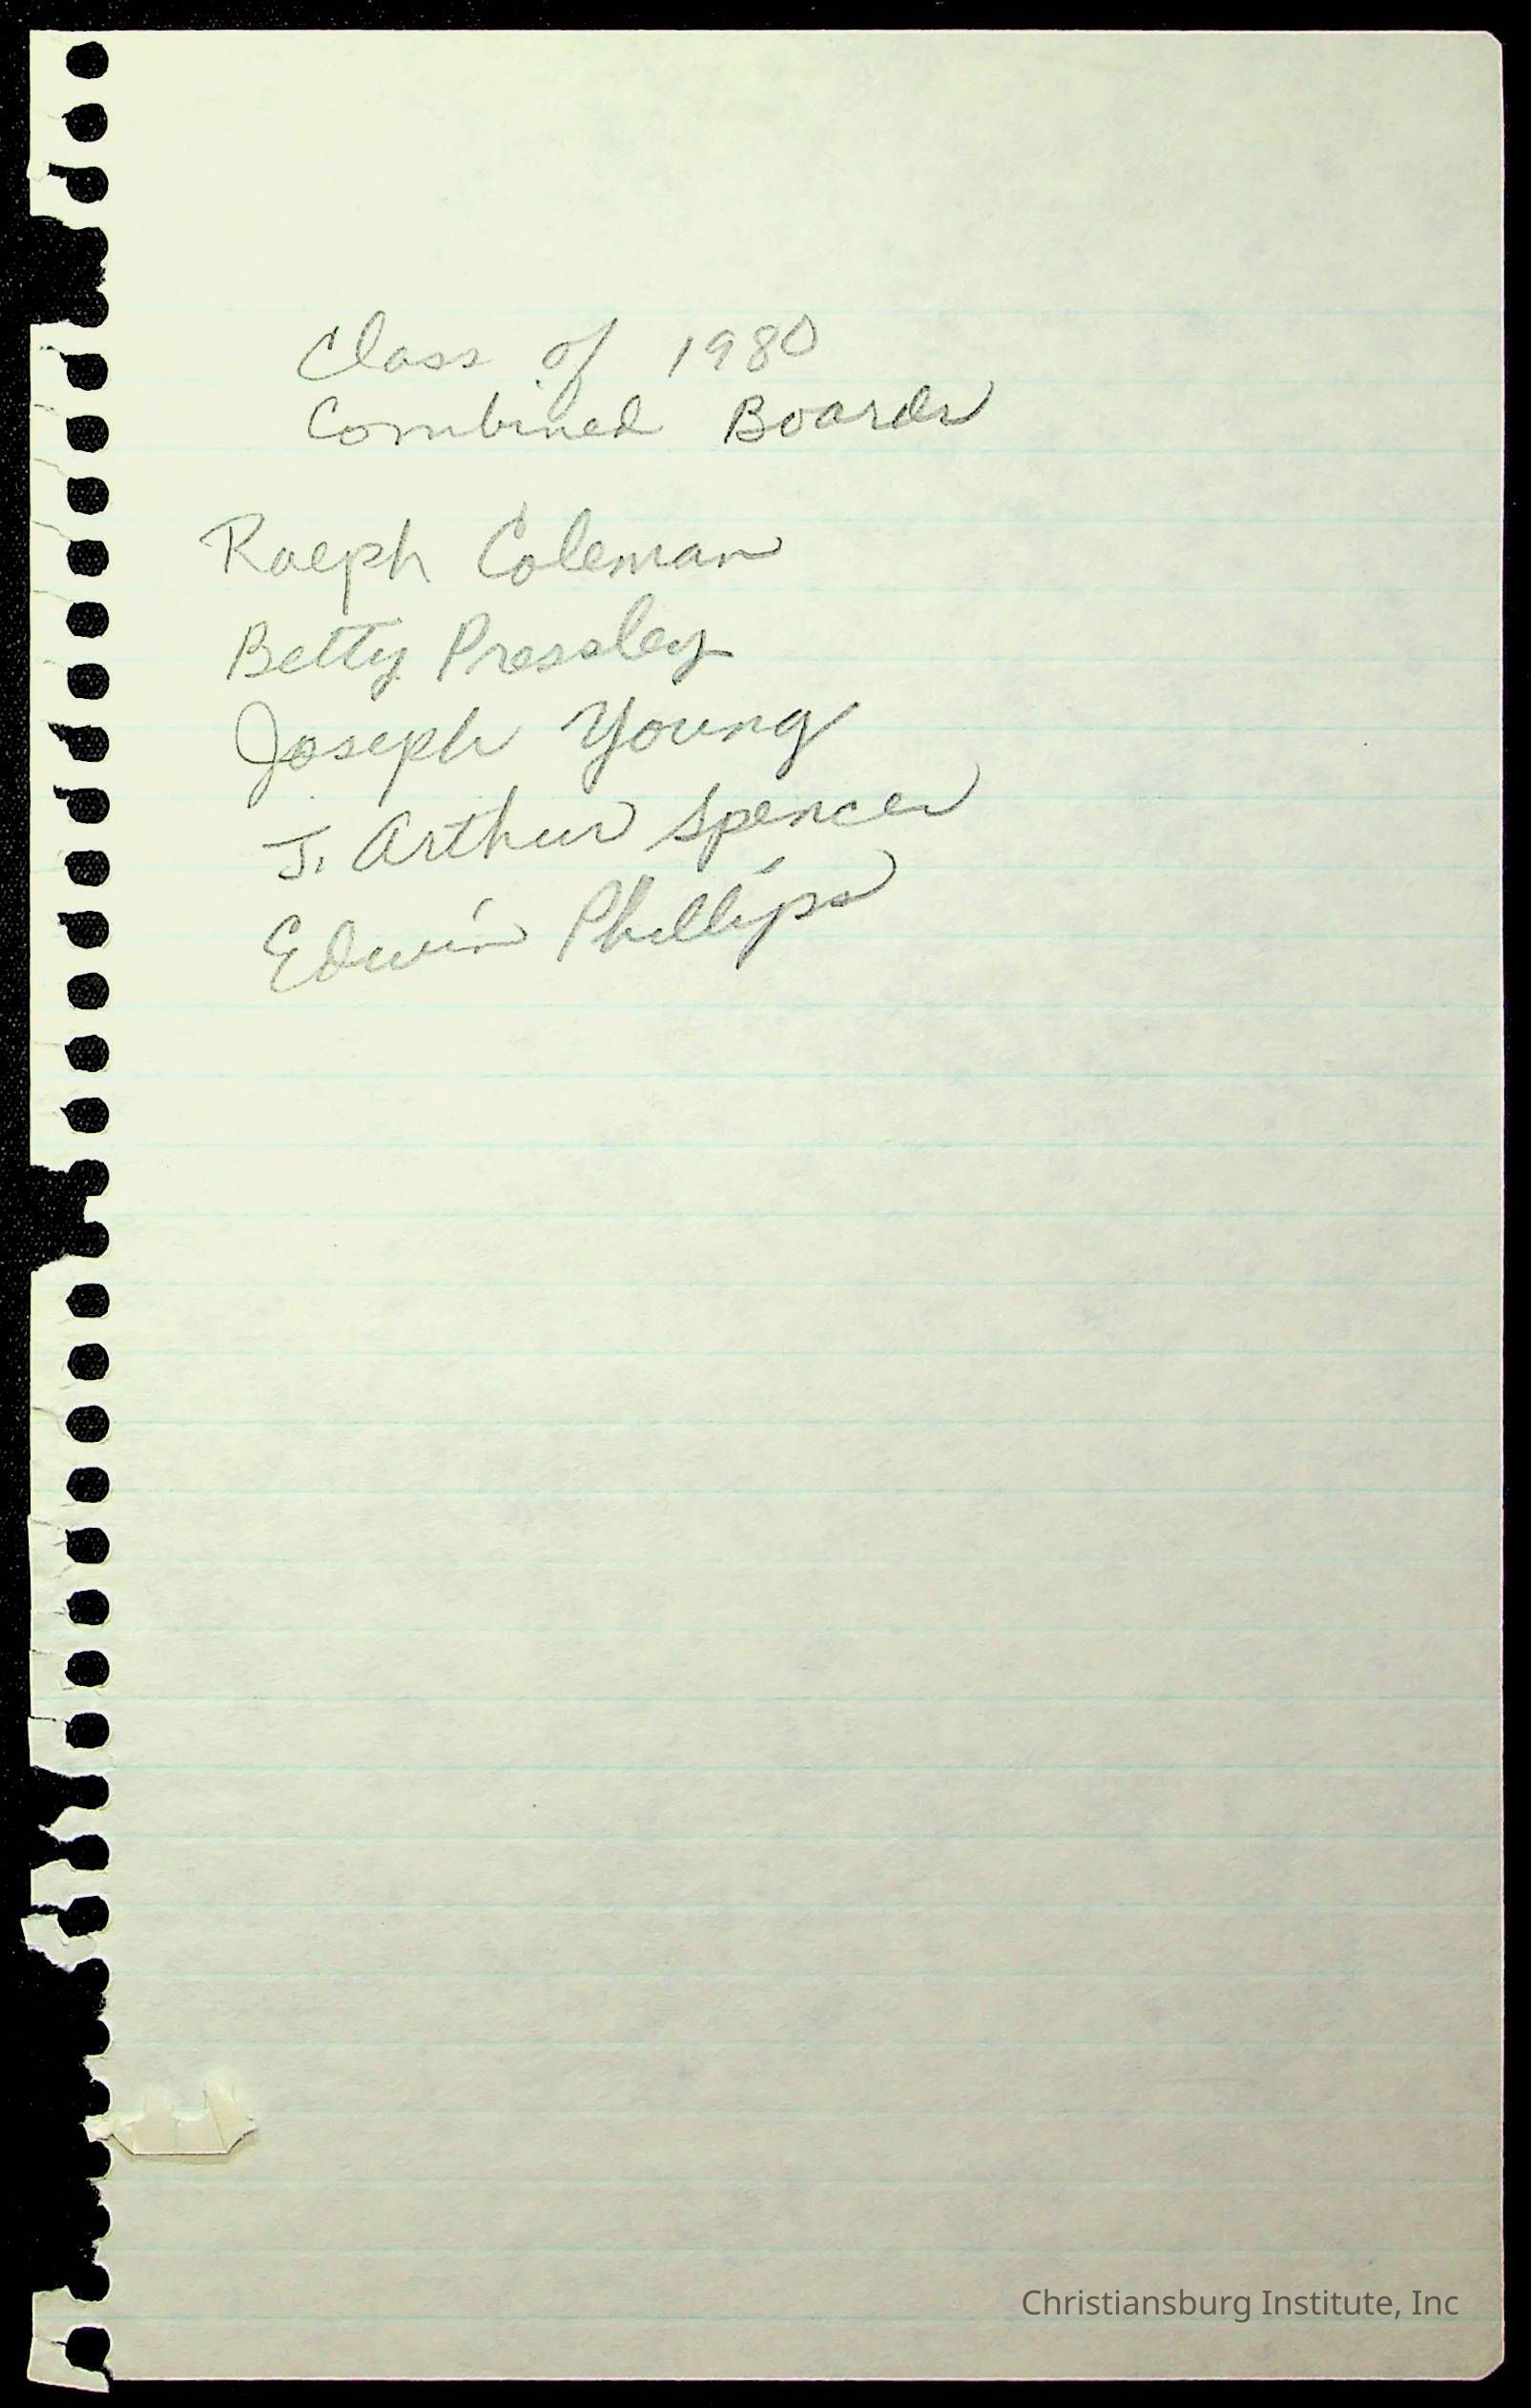 Class of 1980
Combined Boards
Ralph Coleman
Betty Pressley
Joseph Young
J. Arthur Spencer
Edwin Phillips
Christiansburg Institute, Inc